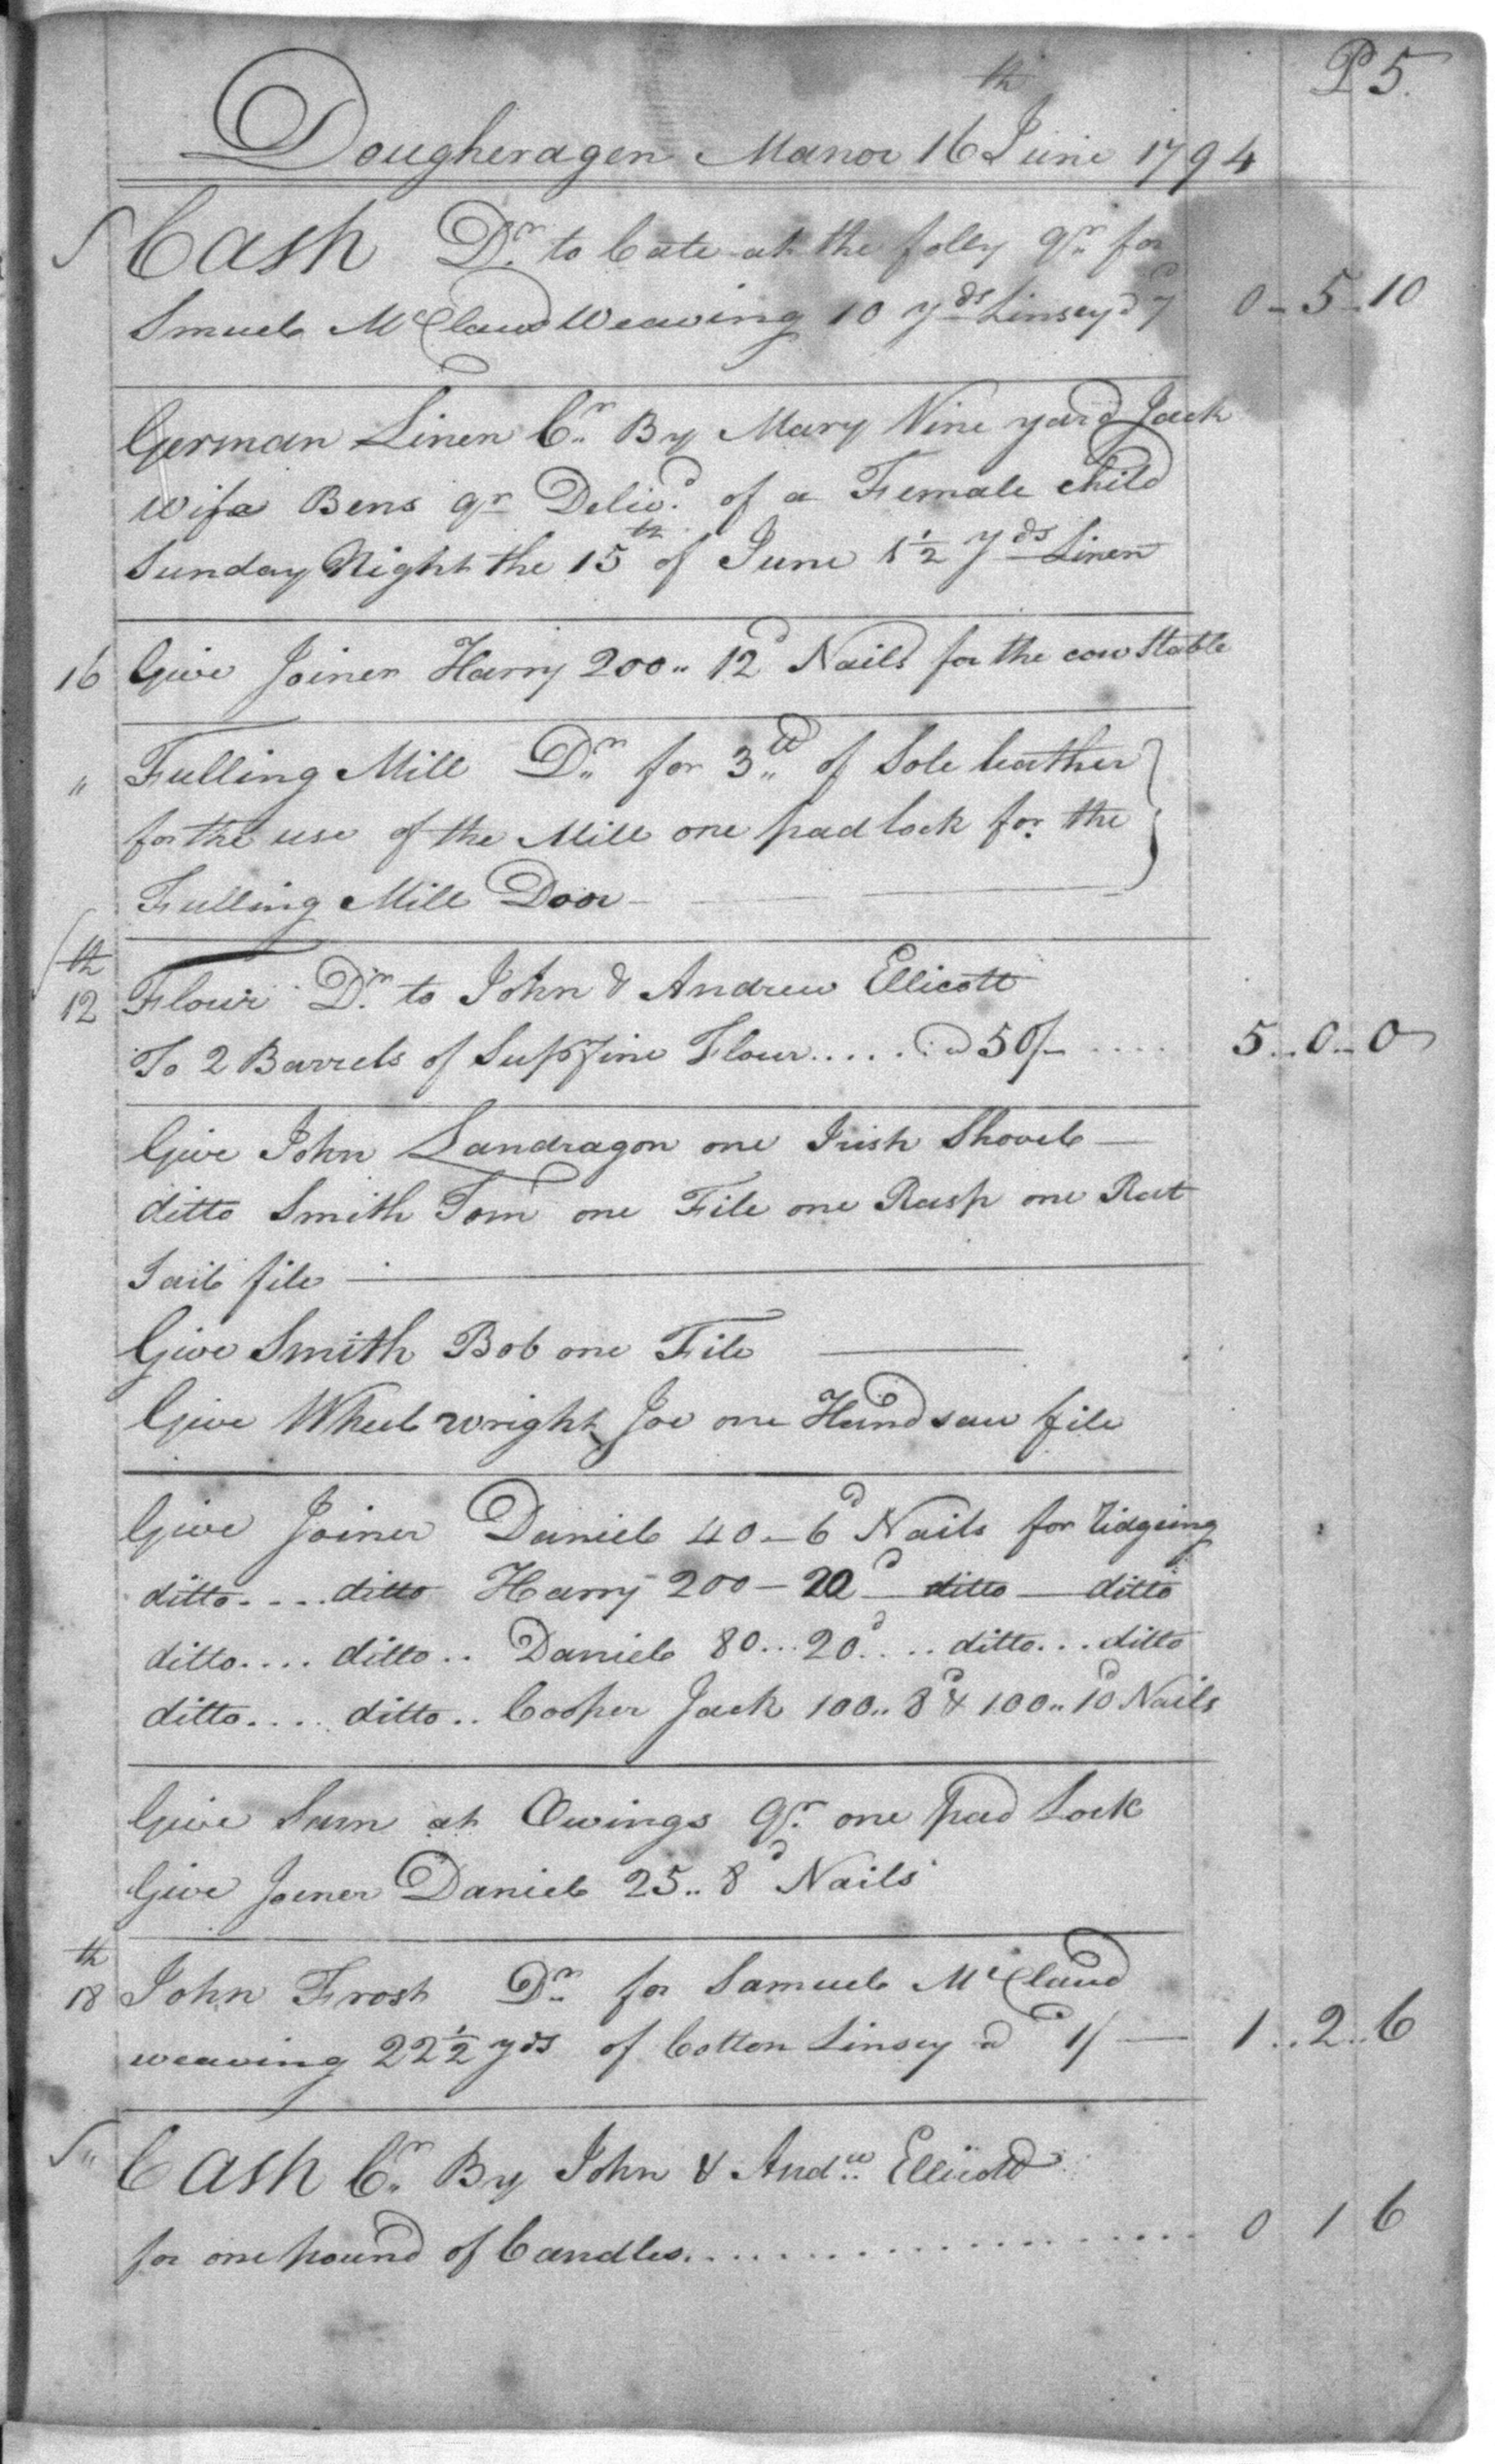 P 5
Dougheragen Manor 16th June 1794
Cash Dr. to Cate at the folly Qr. for
Smuel McClaud Weaving 10 yds Linsey @ 7d 0-5-10
German Linen Cr. By Mary Nine yard Jack
wife Bens qr Delivd. of a Female Child
Sunday Night the 15th of June 1½ yds Linen
16 Give Joiner Harry 200.. 12d Nails for the cow Stable
" Fulling Mill Dr. for 3 lb of Sole leather
for the use of the Mill one pad lock for the
Fulling Mill Door
12th Flour Dr. to John & Andrew Ellicott
To 2 Barrels of Supfine Flour..... @ 50/- .... 5..0..0
Give John Landragon one Irish Shovel
ditto Smith Tom one File one Rasp one Rat
Tail file
Give Smith Bob one File
Give Wheel wright Joe one Handsaw file
Give Joiner Daniel 40-6d Nails for ridgeing
ditto....ditto Harry 200-20d ditto ditto
ditto.... ditto.. Daniel 80...20d.... ditto... ditto
ditto.... ditto.. Cooper Jack 100.. 8d & 100.. 10d Nails
Give Sam at Owings Qr. one pad Lock
Give Joiner Daniel 25.. 8d Nails
18th John Frost Dr. for Samuel McClaud
weaving 22½ yds of Cotton Linsey @ 1/ 1..2..6
" Cash Cr. By John & Andw. Ellicott
for one pound of Candles.................... 0 1 6